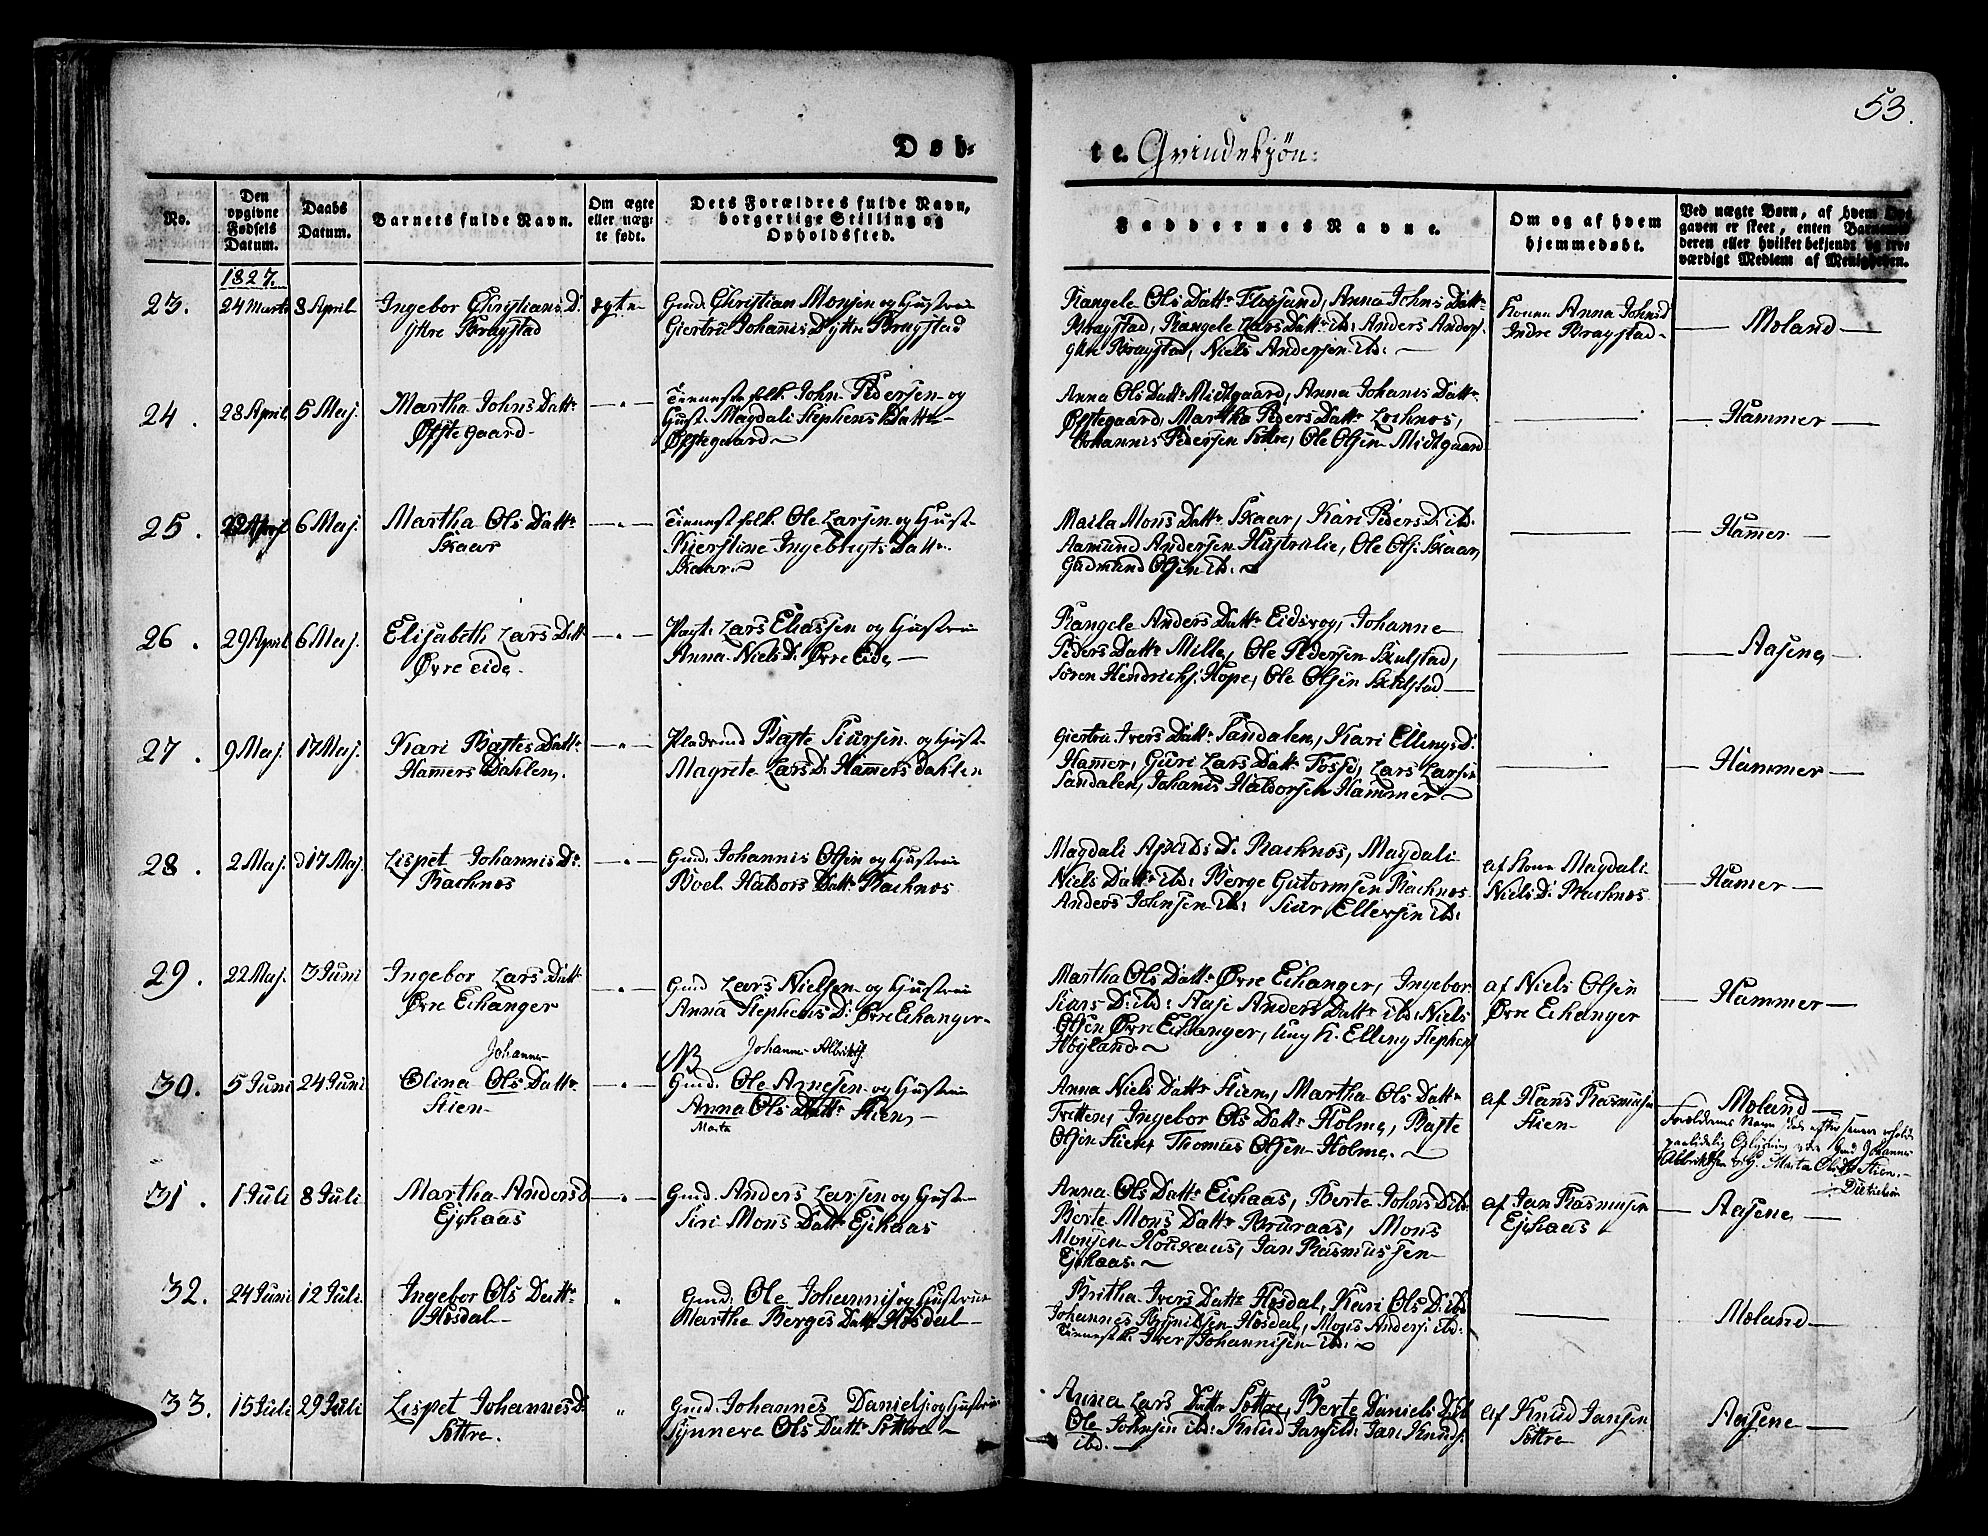 53.
Døb-
te. Qvindekjøn:
No.
Den opgivne Fødsels Datum.
Daabs Datum.
Barnets fulde Navn.
Om ægte eller uægte født.
Dets Forældres fulde Navn, borgerlige Stilling og Opholdssted.
Faddernes Navne.
Om og af hvem hjemmedøbt.
Ved uægte Børn, af hvem Opgaven er skeet, enten Barnemoderen eller hvilket bekjendt og troværdigt Medlem af Menigheden.
1827.
23. 24 Marts 8 April Ingebor Christians D. ægte
Ytre Bragstad
Gmd. Christian Monsen og Hustrue
Giertru Johanis D. Yttre Bragstad
Rangele Ols Datt. Flogsund, Anna Johns Datt.
Bragstad, Rangele Lars Datt. ib: Anders Anders.
Ytre Bragstad, Niels Andersen ib. —
Kone Anna Johns D
Indre Bragstad
— Moland —
24. 28 April 5 Maj. Martha Johns Datt. — „ —
Øfstegaard
Tienneste folk. John Pedersen og
Hust. Magdali Stephens Datt.
Øfstegaard
Anna Ols Datt. Midtgaard, Anna Johanis Datt.
Øfstegaard, Martha Peders Datt.
Johannis Pedersen Sottre, Ole Olsen Midtgaard
— Hammer —
25. 6 Maj. Martha Ols Datt. — „ —
Skaar
Tiennest folk. Ole Larsen og Hust.
Kierstine Ingebrigts Datt.
Skaar.
Maila Mons Datt. Skaar, Kari Peders D. ib.
Aamund Andersen Ole Ols. Skaar,
Gudmund Olsen ib.
— Hamer —
26. 29 April 6 Maj. Elisabeth Lars Datt — „ —
Øvre eide.
Lars Eliassen og Hustrue
Anna Niels D. Øvre Eide —
Rangele Anders Datt. Eidsvog, Johanne
Peders Datt. Mille, Ole Pedersen Skulstad,
Søren Hendrichs. Hope, Ole Olsen Skulstad —
— Aasene, —
27. 9 Maj. 17 Maj. Kari Baltes Datt. — „ —
Hamers Dahlen,
Pladsmd Balte Siursen og Hust.
Magrete Lars D. Hamers dahlen
Giertru Ivers Datt. Sandalen, Kari Ellings D.
Hamer, Guri Lars Datt. Fosse, Lars Larsen
Sandalen, Johanis Haldorsen Hammer
— Hammer —
28. 2 Maj. 17 Maj. Lispet Johannis D. — „ —
Raknos
Gmd. Johannis Olsen og Hustrue
Boel Haldors Datt. Raknos
Magdali D. Raknos, Magdali
Niels Datt. ib: Berge Gutormsen Raknos
Anders Johnsen ib: Siur Ellersen ib:
af Kone Magdali
Niels D. Raknos
— Hamer —
29. 22 Maj. 3 Juni Ingebor Lars Datt — „ —
Øvre Eihanger
Gmd Lars Nielsen og Hustrue
Anna Stephens D: Øvre Eihanger
Martha Ols Datt. Øvre Eihanger, Ingebor
D. ib: Anders Datt. ib: Niels
Olsen Øvre Eihanger, ung K. Elling Stephens
Høyland.
af Niels Olsen
Øvre Eihanger
— Hammer —
Johannes
NB Johannes Albriktsf.
30. 5 Juni 24 Juni Olina Ols Datt. — „ —
Stien
Gmd. Ole Arnesen og Hustrue
Anna Ols Datt. Stien, —
Marta
Anna Niels Datt. Stien, Martha Ols Datt.
Tvitten, Ingebor Ols Datt. Holme, Balte
Olsen Stien, Thomas Olsen Holme.
af Hans Rasmusen
Stien
— Moland —
Forældrenes Navn skal efter senere erholdt
paalidelig Oplysning være Gmd Johannes
Albriktsen og H. Marta Olsdt. Stien.
31. 1 Juli 8 Juli Martha Anders D — „ —
Ejkaas
Gmd. Anders Larsen og Hust
Siri Mons Datt. Ejkaas
Anna Ols Datt. Eikaas, Berte Johns D ib:
Berte Mons Datt. Bruraas, Mons
Monsen Jan Rasmussen
Ejkaas.
af Jan Rasmusen
Ejkaas
— Aasene —
32. 24 Juni 12 Juli. Ingebor Ols Datt. „
Hosdal
Gmd. Ole Johannis. og Hustrue
Marthe Berges Datt. Hosdal —
Britha Ivers Datt. Hosdal, Kari Ols D. ib:
Johannes Hosdal, Mons Anders. ib:
Tiennest k. Iver Johannissen ib:
— Moland —
33. 15 Juli 29 Juli Lispet Johannes D. „
Sottre.
Gmd. Johannes Daniels. og Hustrue
Synneve Ols Datt. Sottre
Anna Lars Datt. Sottre, Berte Daniels D. ib
Ole Johnsen ib: Knud Jans. ib: Jan Knuds.
ibd. —
af Knud Jansen
Sottre
— Aasene —